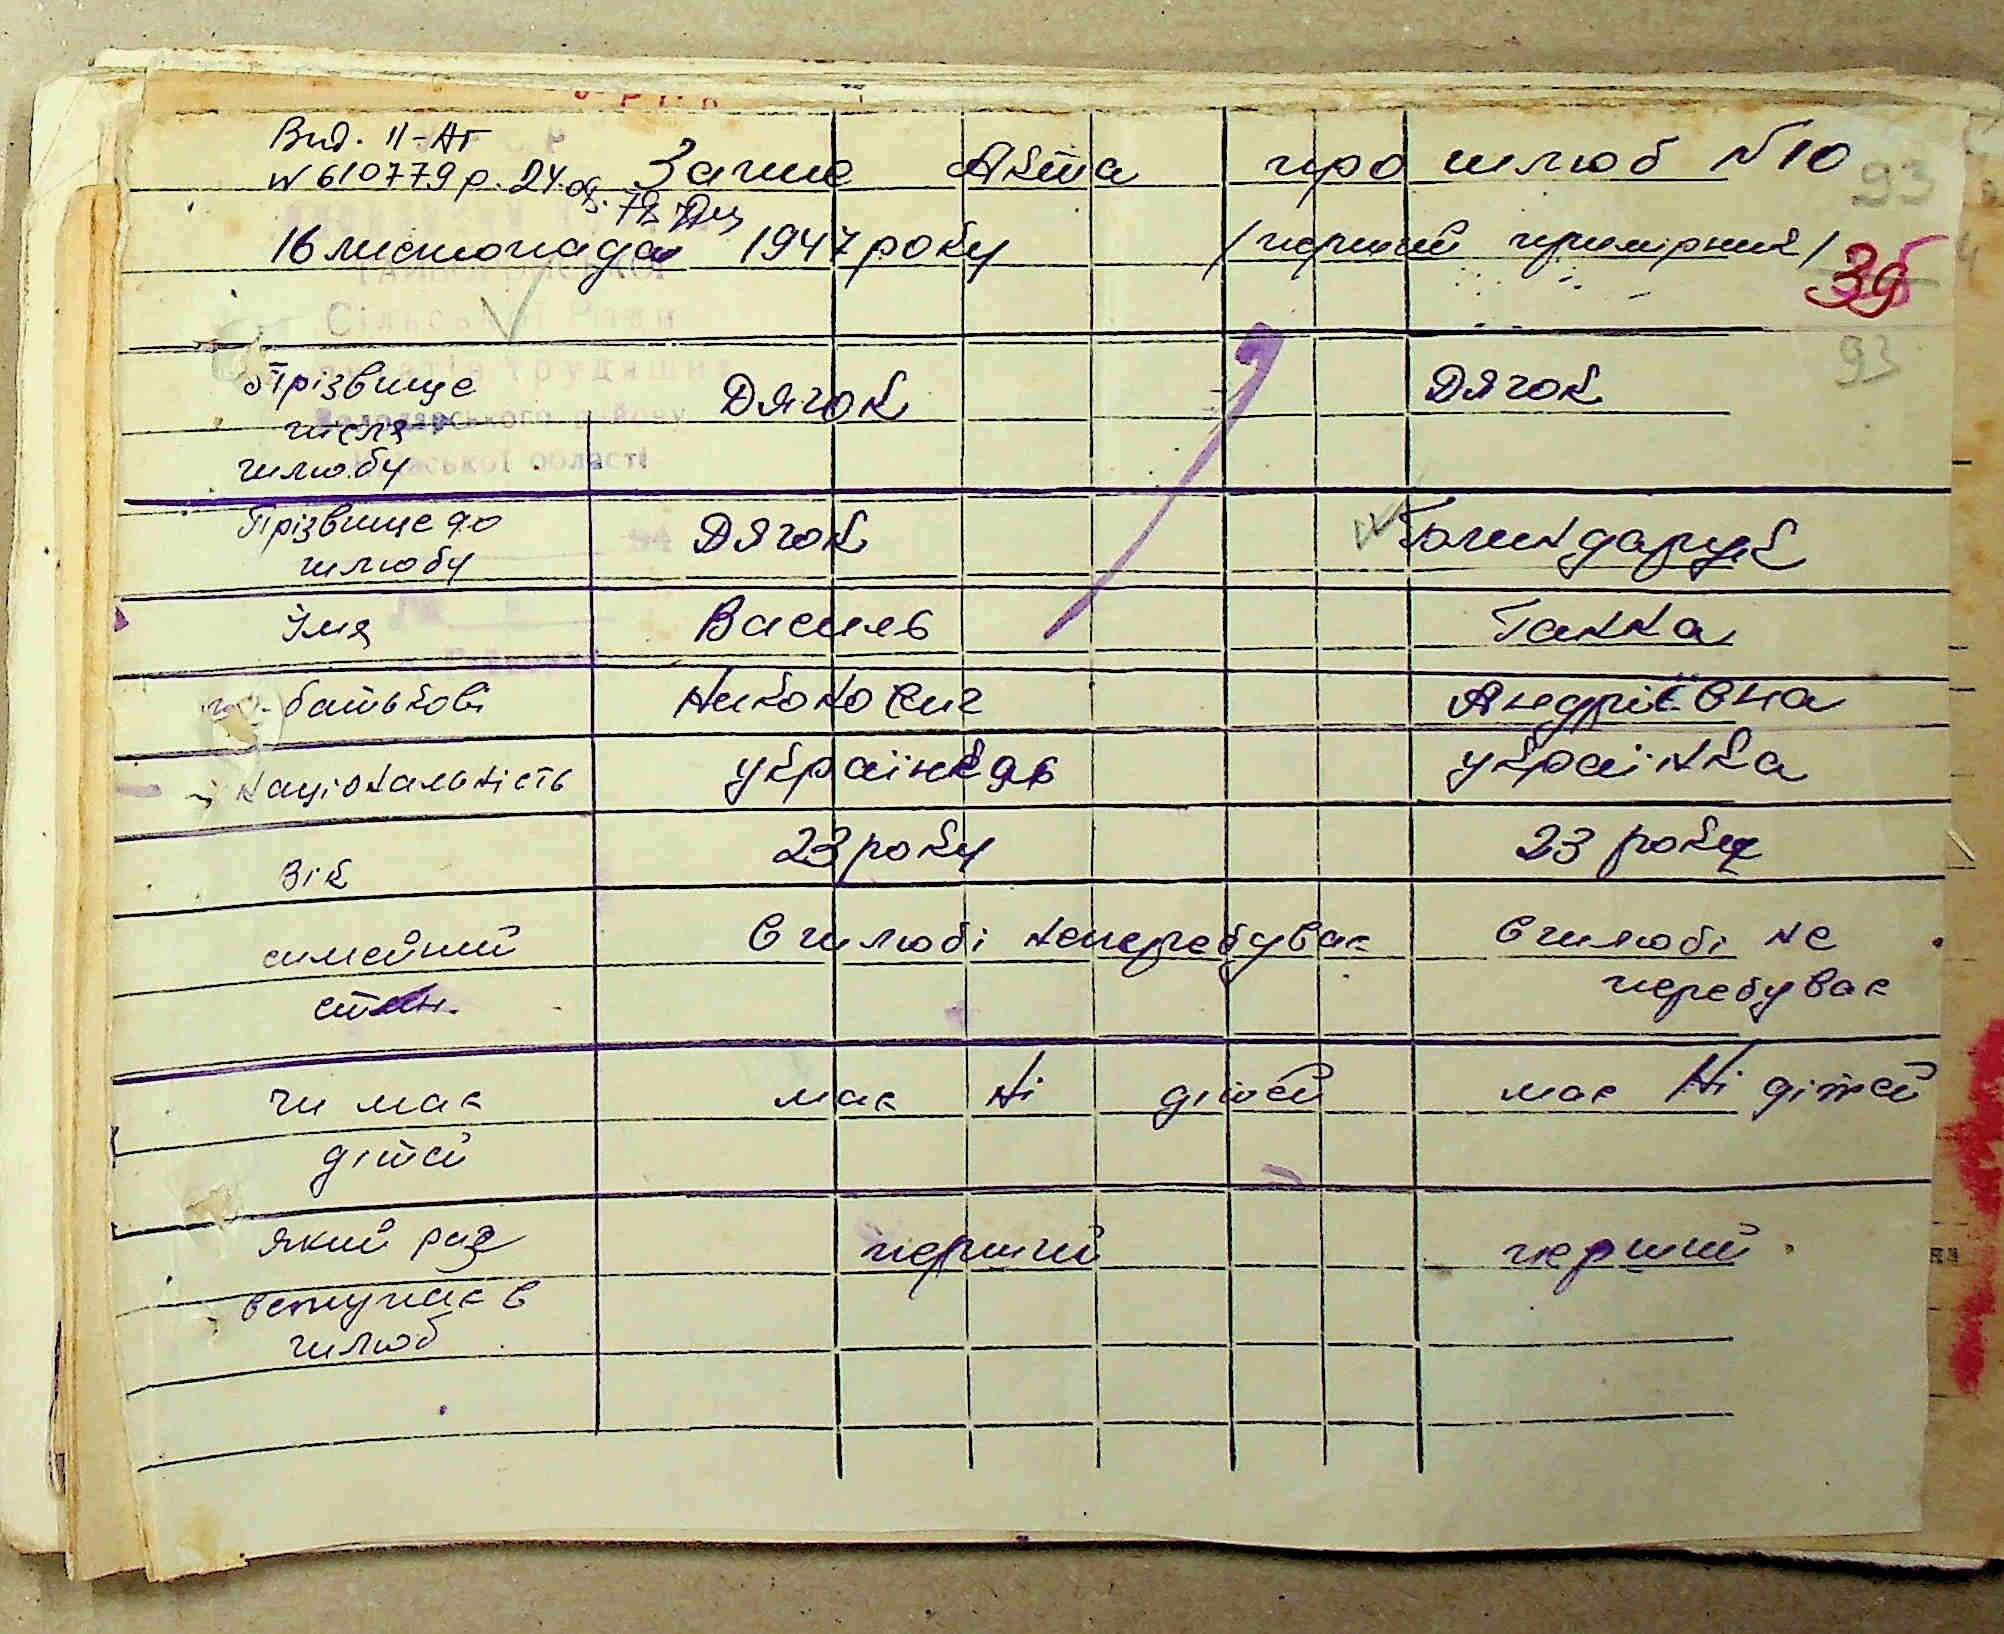 Вид. II-АГ
N 610779 р. 24.
Запис Акта про шлюб N10
93
16 листопада 1947 року /перший примірник/
39
Сільської Ради
депутатів трудящих
Володарського району
Київської області
93
Прізвище після шлюбу Дячок Дячок
Прізвище до шлюбу Дячок
Імя Василь Ганна
по-батькові Никонович Андріївна
національність українець українка
Вік 23 року 23 року
симейний стан. в шлюбі неперебував в шлюбі не перебував
чи має дітей має Ні дітей має Ні дітей
який раз вступає в шлюб перший перший